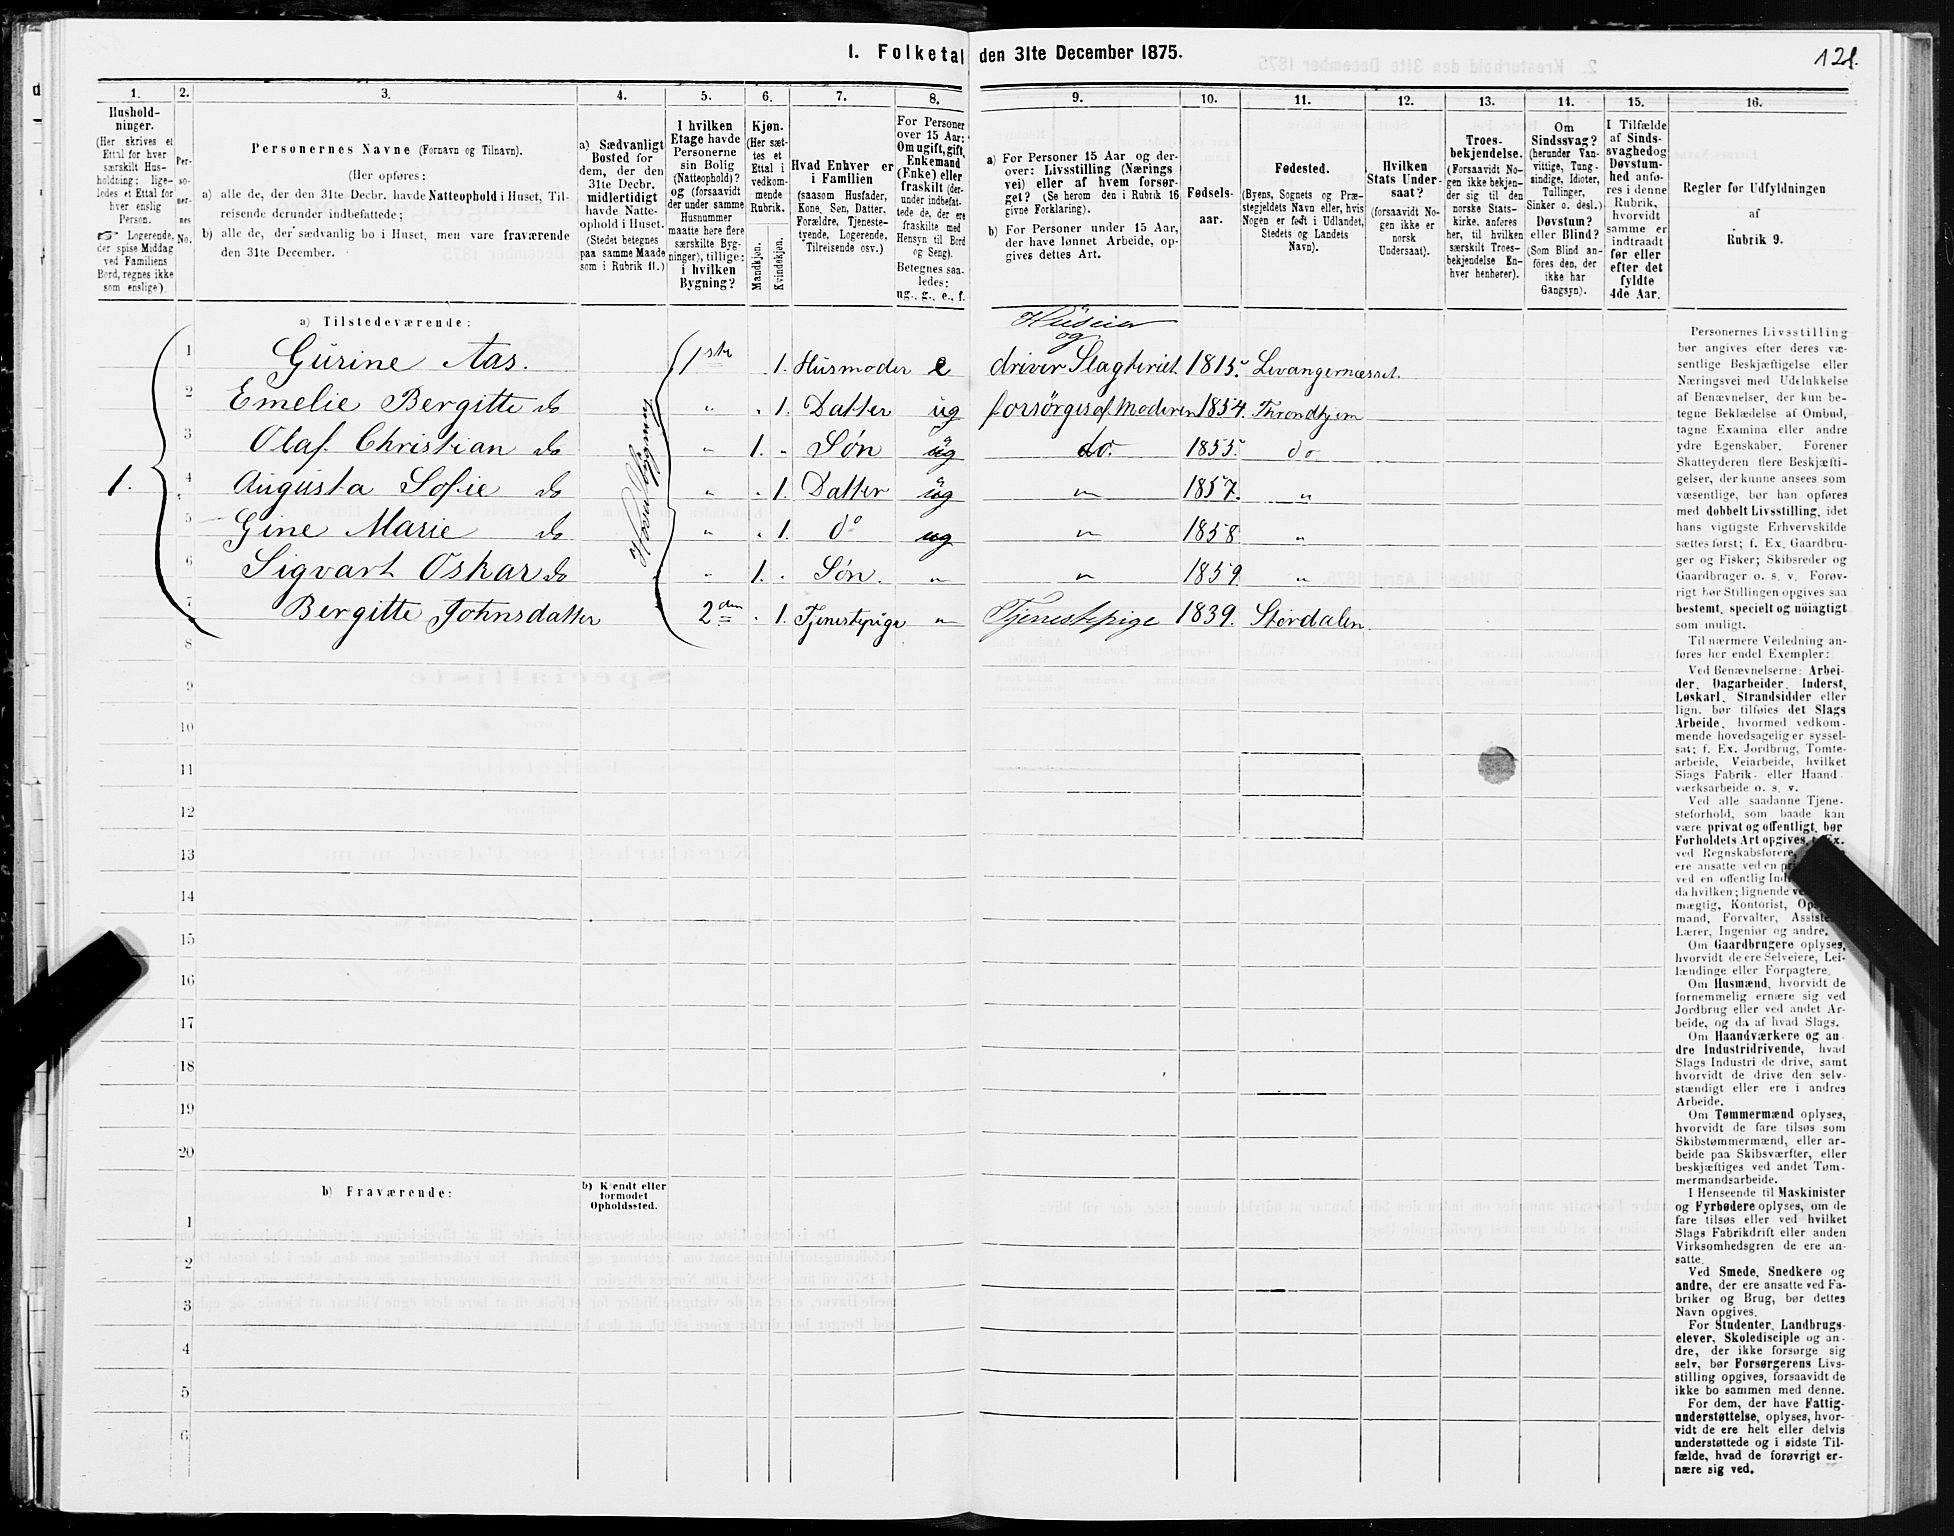 1. Folketal den 31te December 1875.
121.
1.
2.
3.
4.
5.
6.
7.
8.
9.
10.
11.
12.
13.
14.
15.
16.
Hushold-
ninger.
(Her skrives et
Ettal for hver
særskilt Hus-
holdning; lige-
ledes et Ettal for
hver enslig
Person.
☞ Logerende,
der spise Middag
ved Familiens
Bord, regnes ikke
som enslige).
Per-
so-
ner-
nes
No.
Personernes Navne (Fornavn og Tilnavn).
(Her opføres:
a) alle de, der den 31te Decbr. havde Natteophold i Huset, Til-
reisende derunder indbefattede;
b) alle de, der sædvanlig bo i Huset, men vare fraværende
den 31te December.
a) Sædvanligt
Bosted for
dem, der den
31te Decbr.
midlertidigt
havde Natte-
ophold i Huset.
(Stedet betegnes
paa samme Maade
som i Rubrik 11.)
I hvilken
Etage havde
Personerne
sin Bolig
(Natteophold)?
og (forsaavidt
der under samme
Husnummer
maatte høre flere
særskilte Byg-
ninger), tillige:
i hvilken
Bygning?
Kjøn.
(Her sæt-
tes et
Ettal i
vedkom-
mende
Rubrik.
Mandkjøn.
Kvindekjøn.
Hvad Enhver er
i Familien
(saasom Husfader,
Kone, Søn, Datter,
Forældre, Tjeneste-
tyende, Logerende,
Tilreisende osv.)
For Personer
over 15 Aar:
Om ugift, gift,
Enkemand
(Enke) eller
fraskilt (der-
under indbefat-
tede de, der ere
fraskilte med
Hensyn til Bord
og Seng).
Betegnes saa-
ledes:
ug., g., e., f.
a) For Personer 15 Aar og der-
over: Livsstilling (Nærings
vei) eller af hvem forsør-
get? (Se herom den i Rubrik 16
givne Forklaring).
b) For Personer under 15 Aar,
der have lønnet Arbeide, op-
gives dettes Art.
Fødsels-
aar.
Fødested.
(Byens, Sognets og Præ-
stegjeldets Navn eller, hvis
Nogen er født i Udlandet,
Stedets og Landets
Navn).
Hvilken
Stats Under-
saat?
(forsaavidt No-
gen ikke er
norsk
Undersaat).
Troes-
bekjendelse.
(Forsaavidt No-
gen ikke bekjen-
der sig til den
norske Stats-
kirke, anføres
her, til hvilken
særskilt Troes-
bekjendelse En-
hver henhører).
Om
Sindssvag?
(herunder Van-
vittige, Tung-
sindige, Idioter,
Tullinger,
Sinker o. desl.)
Døvstum?
eller Blind?
(Som Blind an-
føres den, der
ikke har
Gangsyn).
I Tilfælde
af Sinds-
svaghed og
Døvstum-
hed anfø-
res i denne
Rubrik,
hvorvidt
samme er
indtraadt
før eller
efter det
fyldte
4de Aar.
Regler for Udfyldningen
af
Rubrik 9.
a) Tilstedeværende:
1. Hoved Bygning
Huseier
og
1 Gurine Aas. 1ste 1. Husmoder e driver Slagteriet 1815. Levangernæsset.
2 Emelie Bergitte do " 1. Datter ug forsørges af Moderen 1854. Throndhjem
3 Olaf. Christian do " 1. Søn ug do. 1855. do
4 Augusta Sofie do " 1. Datter ug " 1857. "
5 Gine Marie do " 1. do ug " 1858. "
6 Sigvart Oskar do " 1. Søn. " " 1859. "
7 Bergitte Johnsdatter 2den 1. Tjenestepige " Tjenestepige 1839. Stordalen.
8
9
10
11
12
13
14
15
16
17
18
19
20
b) Fraværende:
b) Kjendt eller
formodet
Opholdssted.
1
2
3
4
5
6
Personernes Livsstilling
bør angives efter deres væ-
sentlige Beskjæftigelse eller
Næringsvei med Udelukkelse
af Benævnelser, der kun be-
tegne Beklædelse af Ombud,
tagne Examina eller andre
ydre Egenskaber. Forener
Skatteyderen flere Beskjæfti-
gelser, der kunne ansees som
væsentlige, bør han opføres
med dobbelt Livsstilling, idet
hans vigtigste Erhvervskilde
sættes først; f. Ex. Gaardbru-
ger og Fisker; Skibsreder og
Gaardbruger o. s. v. Forøv-
rigt bør Stillingen opgives saa
bestemt, specielt og nöiagtigt
som muligt.
Til nærmere Veiledning an-
føres her endel Exempler:
Ved Benævnelserne: Arbei-
der, Dagarbeider, Inderst,
Løskarl, Strandsidder eller
lign. bør tilføies det Slags
Arbeide, hvormed vedkom-
mende hovedsagelig er syssel-
sat; f. Ex. Jordbrug, Tomte-
arbeide, Veiarbeide, hvilket
Slags Fabrik- eller Haand-
værksarbeide o. s. v.
Ved alle saadanne Tjene-
steforhold, som baade kan
være privat og offentligt, bør
Forholdets Art opgives,
ved Regnskabsførere,
ere ansatte ved en
ved en offentlig
da hvilken; lignende
mægtig, Kontorist,
mand, Forvalter,
Lærer, Ingeniør og andre.
Om Gaardbrugere oplyses,
hvorvidt de ere Selveiere, Lei-
lændinge eller Forpagtere.
Om Husmænd, hvorvidt de
fornemmelig ernære sig ved
Jordbrug eller ved andet Ar-
beide, og da af hvad Slags.
Om Haandværkere og an-
dre Industridrivende, hvad
Slags Industri de drive, samt
hvorvidt de drive den selv-
stændigt eller ere i andres
Arbeide.
Om Tømmermænd oplyses,
hvorvidt de fare tilsøs som
Skibstømmermænd, eller ar-
beide paa Skibsværfter, eller
beskjæftiges ved andet Tøm-
mermandsarbeide.
I Henseende til Maskinister
og Fyrbødere oplyses, om de
fare tilsøs eller ved hvilket
Slags Fabrikdrift eller anden
Virksomhedsgren de ere an-
satte.
Ved Smede, Snedkere og
andre, der ere ansatte ved Fa-
briker og Brug, bør dettes
Navn opgives.
For Studenter, Landbrugs-
elever, Skoledisciple og an-
dre, der ikke forsørge sig
selv, bør Forsørgerens Livs-
stilling opgives, forsaavidt de
ikke bo sammen med denne.
For dem, der have Fattig-
understøttelse, oplyses, hvor-
vidt de ere helt eller delvis
understøttede og i sidste Til-
fælde, hvad de forøvrigt er-
nære sig ved.